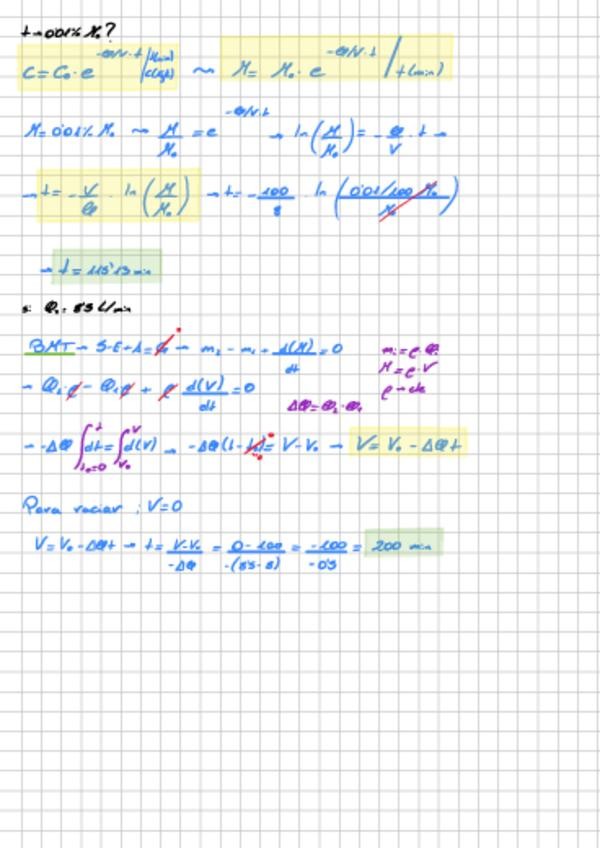 t → 0'01% M₀?
C = C₀·e^(-Q/V·t) | t(min) C(g/l) ~ M = M₀·e^(-Q/V·t) | t(min)
M = 0'01% M₀ ~ M/M₀ = e^(-Q/V·t) → ln(M/M₀) = -Q/V · t →
→ t = -V/Q · ln(M/M₀) → t = -100/8 · ln((0'01/100 M₀)/M₀)
→ t = 115'13 min
si Q₂ = 8'5 L/min
BMT → S-E+A=G → m₂ - m₁ + d(M)/dt = 0 mᵢ = ρ·Qᵢ
M = ρ·V
→ Q₂·ρ - Q₁·ρ + ρ d(V)/dt = 0 ρ → cte
ΔQ = Q₂ - Q₁
→ -ΔQ ∫_{t₀=0}^{t} dt = ∫_{V₀}^{V} d(V) → -ΔQ(t - t₀) = V - V₀ → V = V₀ - ΔQ t
Para vaciar ; V=0
V = V₀ - ΔQt → t = (V-V₀)/(-ΔQ) = (0-100)/(-(8'5-8)) = -100/-0'5 = 200 min